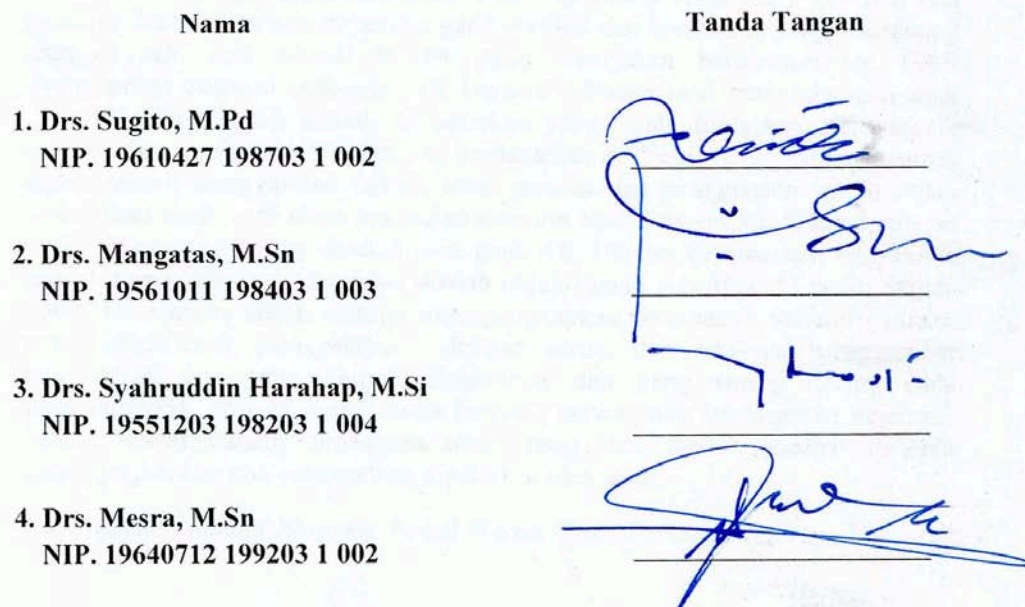 Nama Tanda Tangan
1. Drs. Sugito, M.Pd
NIP. 19610427 198703 1 002
2. Drs. Mangatas, M.Sn
NIP. 19561011 198403 1 003
3. Drs. Syahruddin Harahap, M.Si
NIP. 19551203 198203 1 004
4. Drs. Mesra, M.Sn
NIP. 19640712 199203 1 002